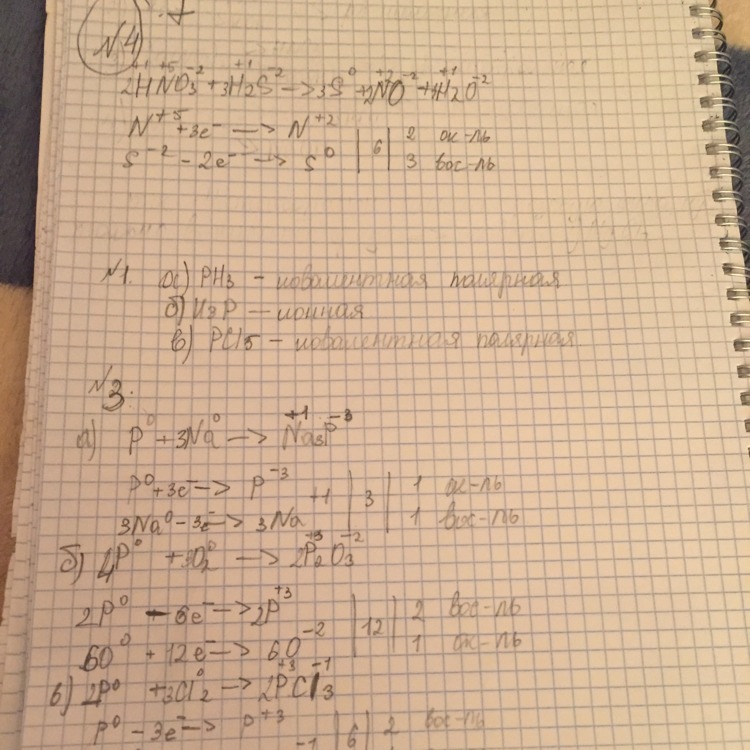 №4
2H⁺¹N⁺⁵O₃⁻² + 3H₂⁺¹S⁻² —> 3S⁰ + 2N⁺²O⁻² + 4H₂⁺¹O⁻²
N⁺⁵ + 3e⁻ —> N⁺² | 6 | 2 ок-ль
S⁻² - 2e⁻ —> S⁰ | 3 вос-ль
№1. а) PH₃ - ковалентная полярная
б) K₃P — ионная
в) PCl₅ - ковалентная полярная
№3.
а) P⁰ + 3Na⁰ —> Na₃⁺¹P⁻³
P⁰ + 3e⁻ —> P⁻³ | 3 | 1 ок-ль
3Na⁰ - 3e⁻ —> 3Na⁺¹ | 1 вос-ль
б) 4P⁰ + 3O₂⁰ —> 2P₂⁺³O₃⁻²
2P⁰ - 6e⁻ —> 2P⁺³ | 12 | 2 вос-ль
6O⁰ + 12e⁻ —> 6O⁻² | 1 ок-ль
в) 2P⁰ + 3Cl₂⁰ —> 2P⁺³Cl₃⁻¹
P⁰ - 3e⁻ —> P⁺³ | 6 | 2 вос-ль
-1